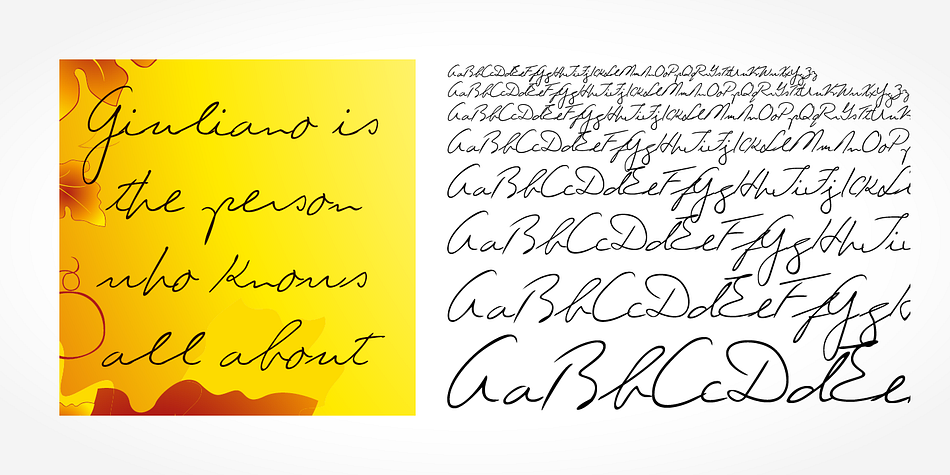 Giuliano is
the person
who knows
all about
AaBbCcDdEeFfGgHhIiJjKkLlMmNnOoPpQqRrSsTtUuVvWwXxYyZz
AaBbCcDdEeFfGgHhIiJjKkLlMmNnOoPpQqRrSsTtUuVvWwXxYyZz
AaBbCcDdEeFfGgHhIiJjKkLlMmNnOoPpQqRrSsTtUuV
AaBbCcDdEeFfGgHhIiJjKkLlMmNnOoPp
AaBbCcDdEeFfGgHhIiJjKkLi
AaBbCcDdEeFfGgHhIii
AaBbCcDdEeFfGg
AaBbCcDdEe